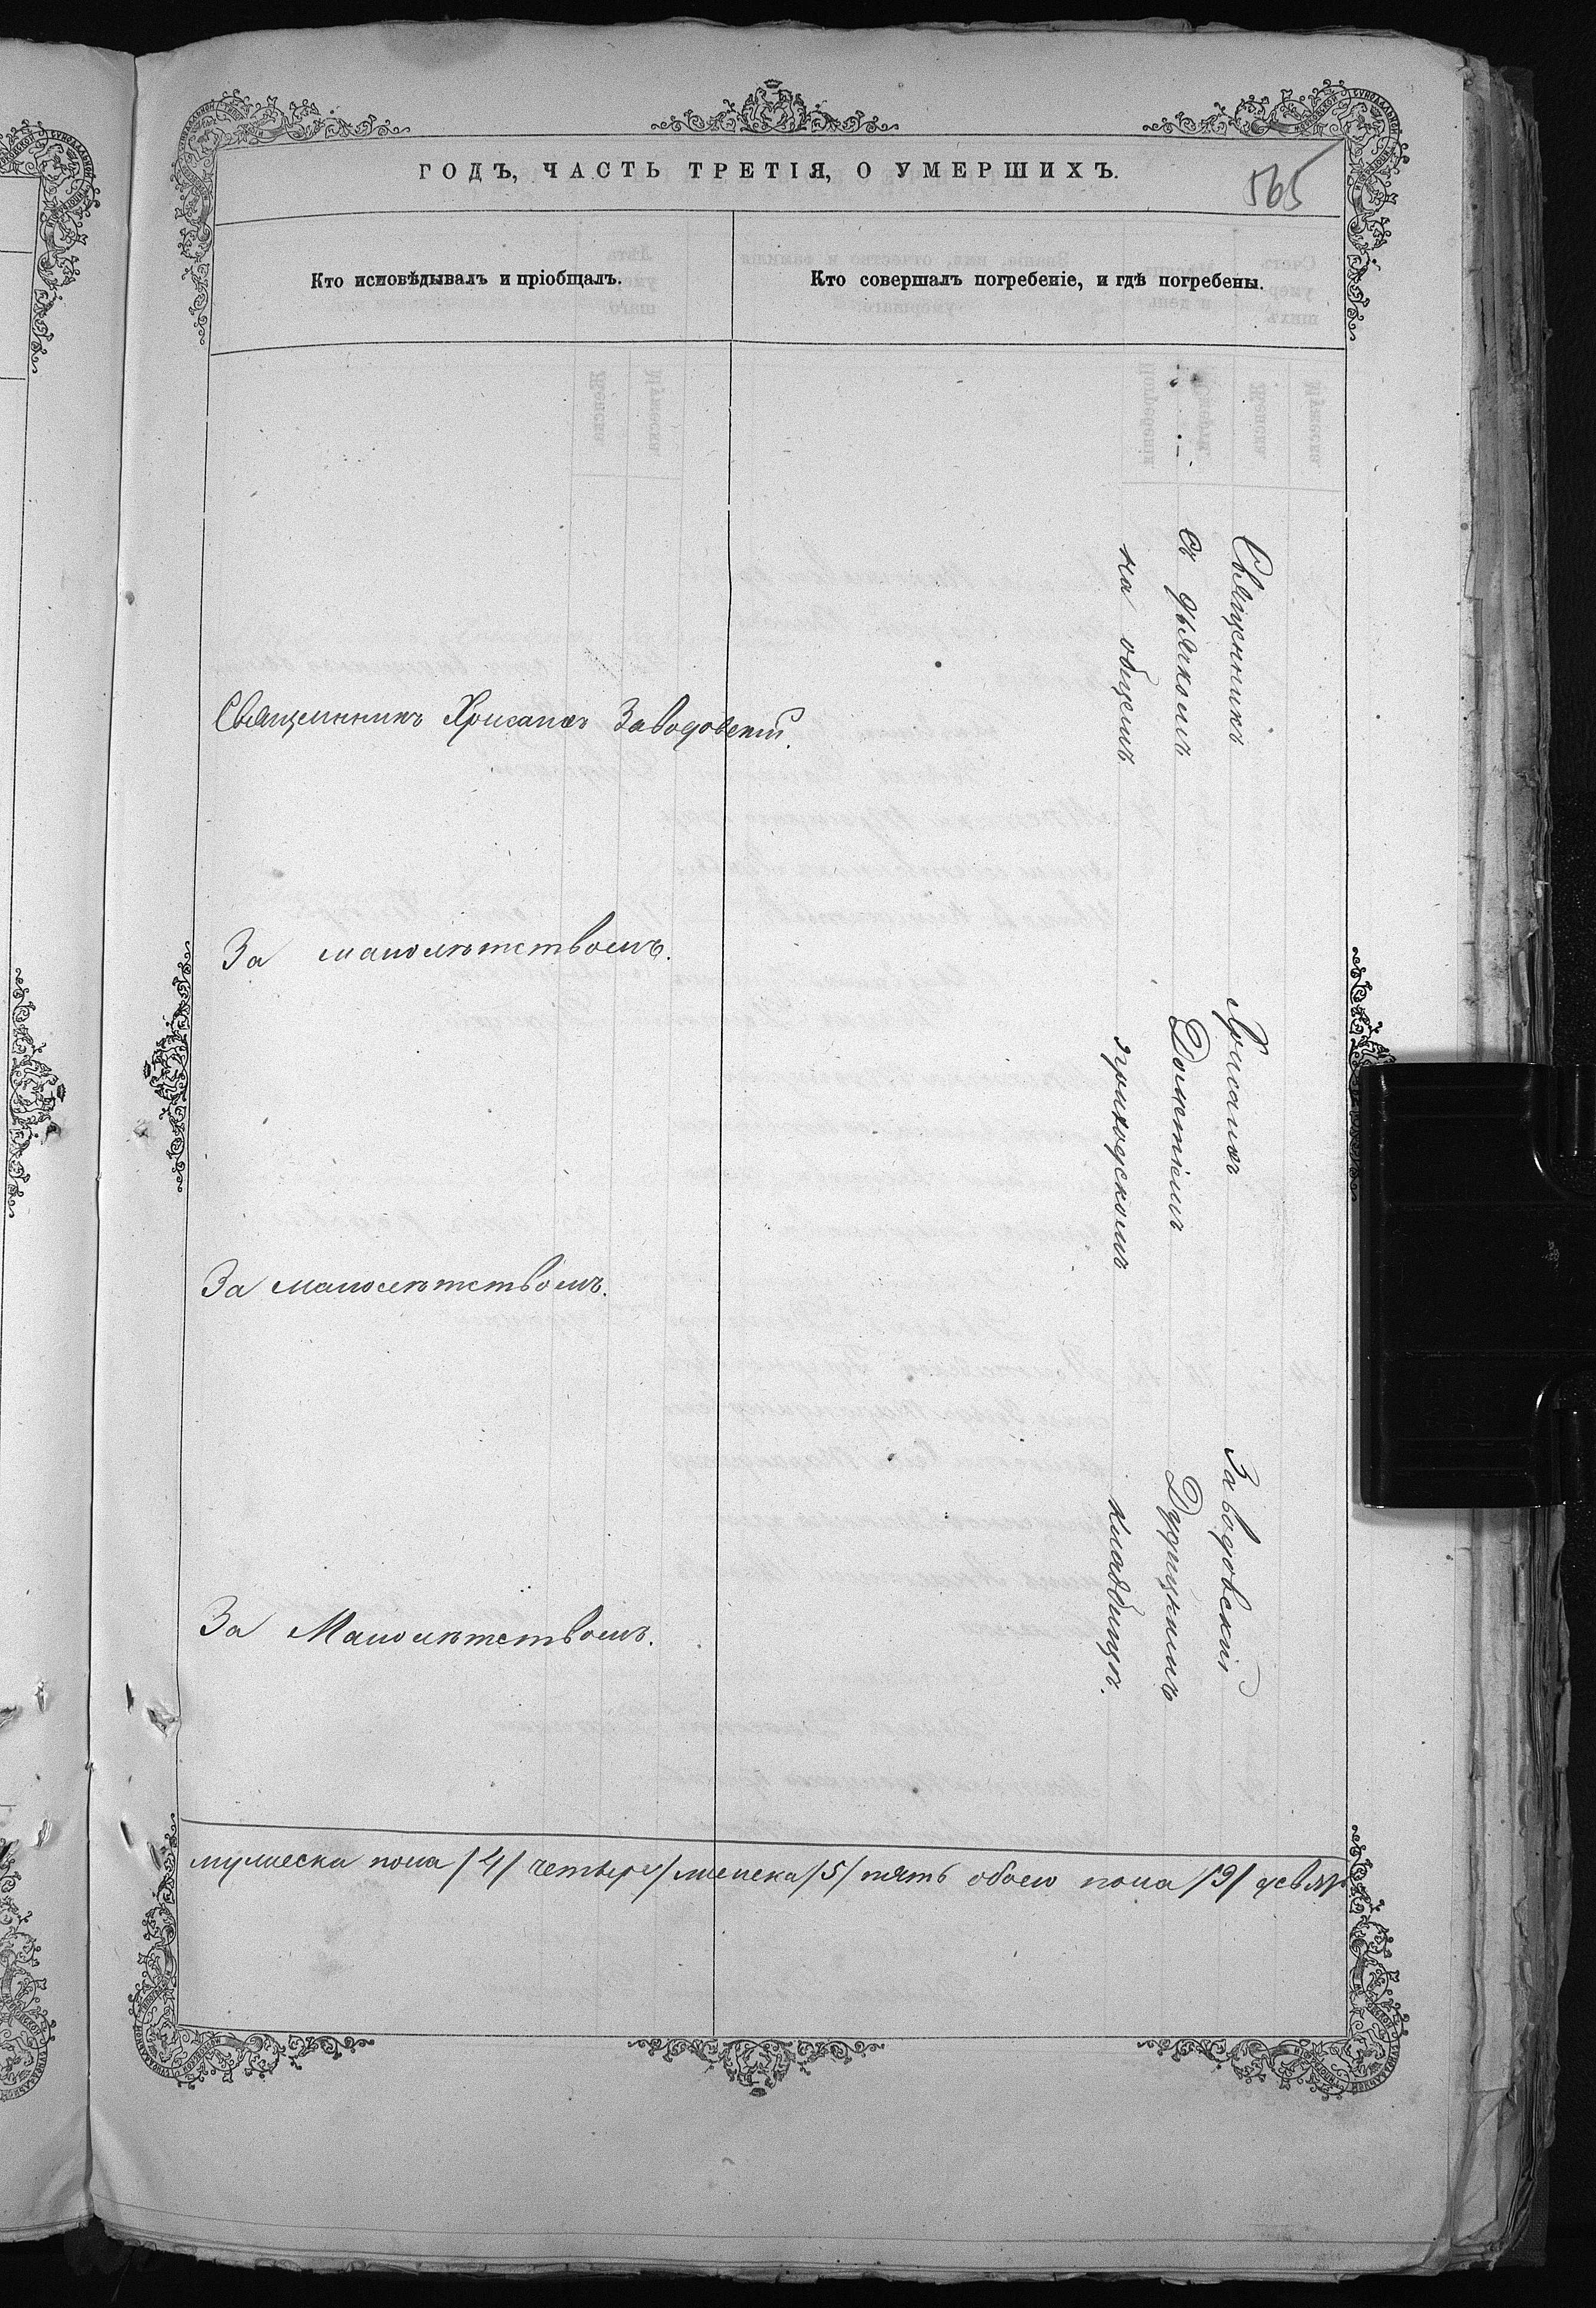 ГОДЪ, ЧАСТЬ ТРЕТІЯ, О УМЕРШИХЪ.
565
Кто исповѣдывалъ и пріобщалъ.
Кто совершалъ погребеніе, и гдѣ погребены.
Священникъ Хрисанѳъ Заводовскій.
За малолѣтствомъ.
За малолѣтствомъ.
За Малолѣтствомъ.
Священникъ Хрисанѳъ Заводовскій
съ дьячкомъ Дометіемъ Дудицкимъ
на общемъ приходскомъ кладбищѣ.
мужеска пола /4/ четыре/ женска /5/ пять обоего пола /9/ девять